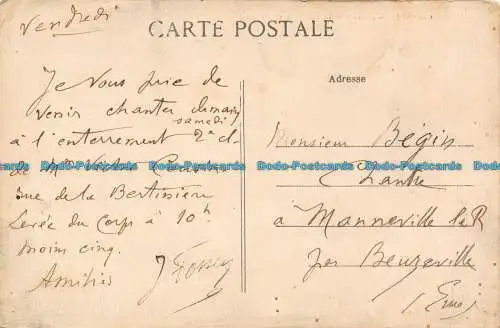 Vendredi
CARTE POSTALE
Je vous prie de
venir chanter demain
samedi
à l'enterrement 2e cl.
de Mme
rue de la
Levée du Corps à 10h
moins cinq.
Amitiés
Adresse
Monsieur Bégin
Chantre
à Manneville la R
par Beuzeville
(Eure)
Dodo-Postcards Dodo-Postcards Dodo-Postcards Dodo-Postcards Dodo-Postcards